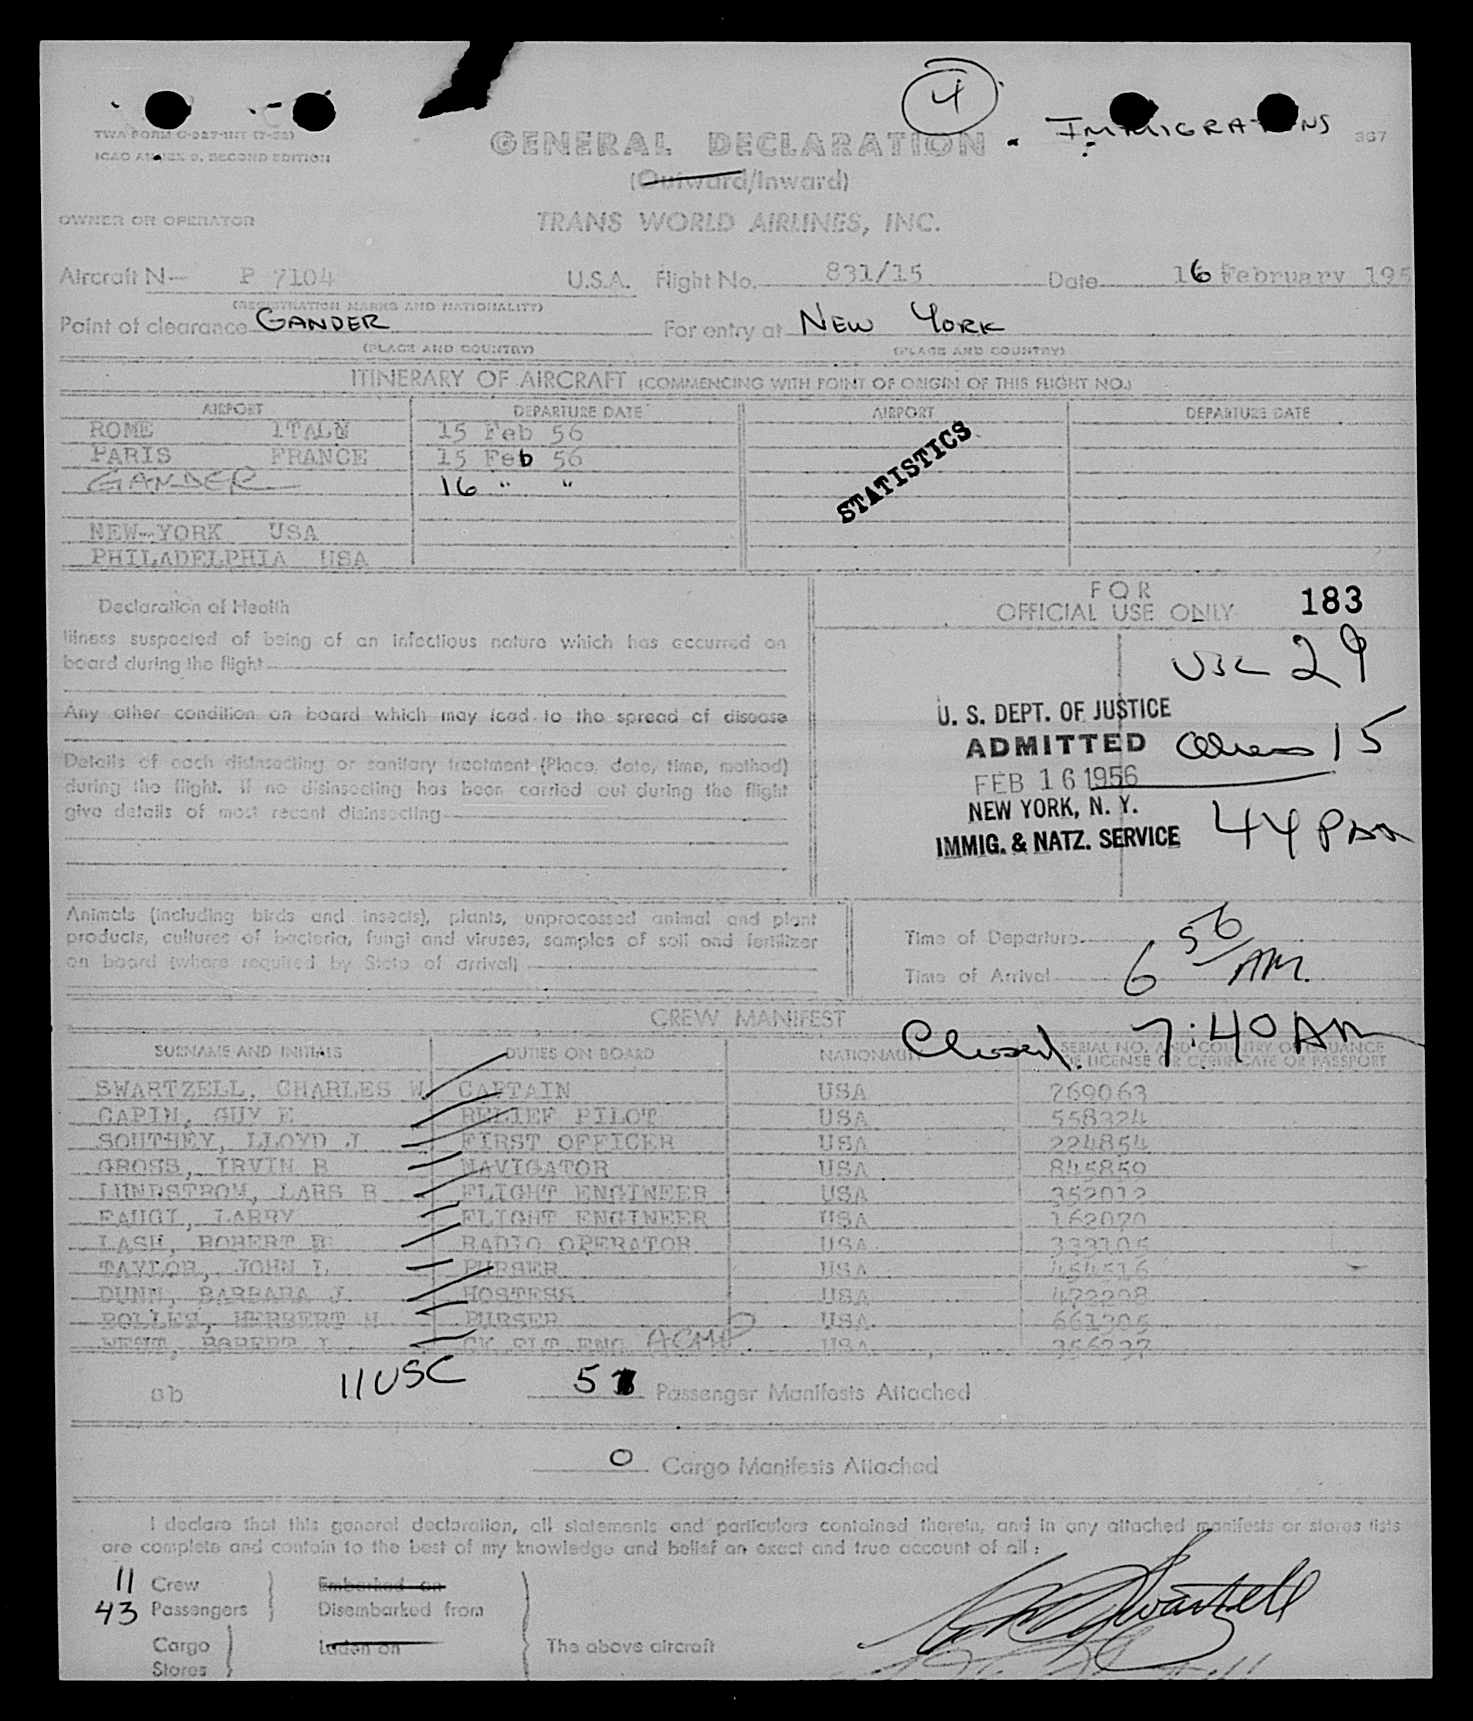 4
IMMIGRATIONS
TWA FORM C-927-INT (7-52)
ICAO ANNEX 9, SECOND EDITION
367
GENERAL DECLARATION
(Outward/Inward)
OWNER OR OPERATOR TRANS WORLD AIRLINES, INC.
Aircraft N— P 7104 U.S.A. Flight No. 831/15 Date 16 February 195
(REGISTRATION MARKS AND NATIONALITY)
Point of clearance GANDER For entry at NEW YORK
(PLACE AND COUNTRY) (PLACE AND COUNTRY)
ITINERARY OF AIRCRAFT (COMMENCING WITH POINT OF ORIGIN OF THIS FLIGHT NO.)
AIRPORT DEPARTURE DATE AIRPORT DEPARTURE DATE
ROME ITALN 15 Feb 56
PARIS FRANCE 15 Feb 56
GANDER 16 " "
STATISTICS
NEW-YORK USA
PHILADELPHIA USA
Declaration of Health
Illness suspected of being of an infectious nature which has occurred on
board during the flight
Any other condition on board which may lead to the spread of disease
Details of each disinsecting or sanitary treatment (Place, date, time, method)
during the flight. If no disinsecting has been carried out during the flight
give details of most recent disinsecting
FOR
OFFICIAL USE ONLY 183
USC 29
U. S. DEPT. OF JUSTICE
ADMITTED
Others 15
FEB 16 1956
NEW YORK, N. Y.
44 Pax
IMMIG. & NATZ. SERVICE
Animals (including birds and insects), plants, unprocessed animal and plant
products, cultures of bacteria, fungi and viruses, samples of soil and fertilizer
on board (where required by State of arrival)
Time of Departure
Time of Arrival 6 56/AM.
CREW MANIFEST
Closed. 7:40 AM
SURNAME AND INITIALS DUTIES ON BOARD NATIONALITY SERIAL NO. AND COUNTRY OF ISSUANCE
OF LICENSE OR CERTIFICATE OR PASSPORT
SWARTZELL, CHARLES W CAPTAIN USA 769063
CAPIN, GUY E RELIEF PILOT USA 558324
SOUTHEY, LLOYD J FIRST OFFICER USA 224854
GROSS, IRVIN B NAVIGATOR USA 845859
LUNDSTROM, LARS B FLIGHT ENGINEER USA 352012
FAUGI, LARRY FLIGHT ENGINEER USA 162070
LASH, ROBERT B RADIO OPERATOR USA 333105
TAYLOR, JOHN L PURSER USA 454516
DUNN, BARBARA J. HOSTESS USA 472298
HERBERT H PURSER USA 661305
ROBERT L CK FLT ENG ACM USA 356237
sb 11 USC 5 Passenger Manifests Attached
0 Cargo Manifests Attached
I declare that this general declaration, all statements and particulars contained therein, and in any attached manifests or stores lists
are complete and contain to the best of my knowledge and belief an exact and true account of all :
11 Crew Embarked on
43 Passengers Disembarked from
Cargo Laden on The above aircraft
Stores
Swartzell